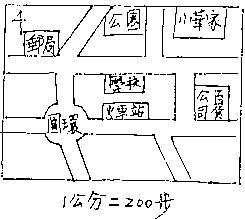 公園
小華家
郵局
學校
火車站
百貨公司
圓環
1公分=200步